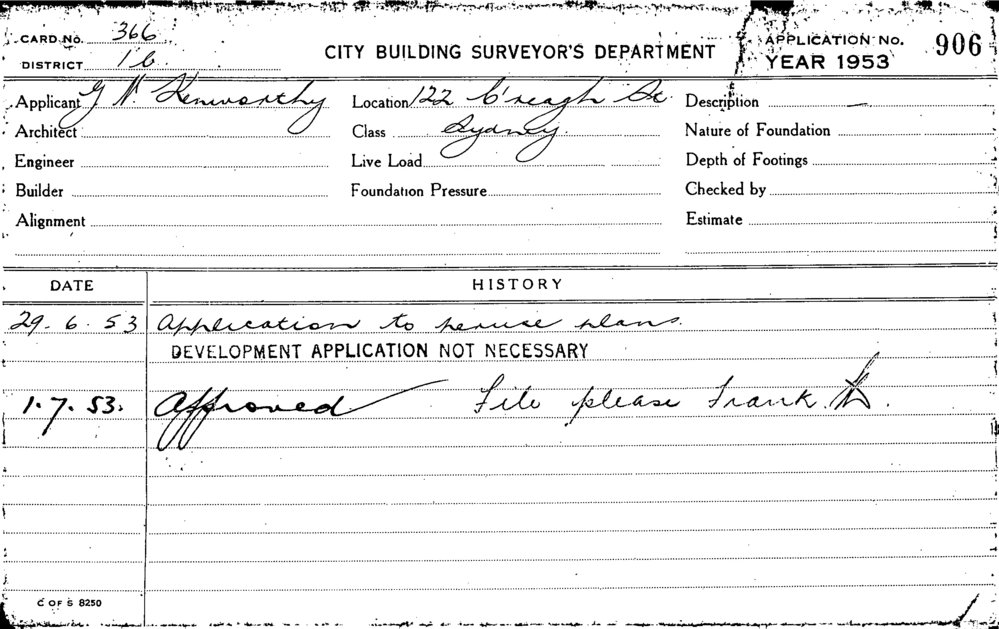 CARD No. 366
DISTRICT 1b
CITY BUILDING SURVEYOR'S DEPARTMENT
APPLICATION No. 906
YEAR 1953
Applicant G N. Kenworthy Location 122 C'reagh St. Description —
Architect Class Sydney. Nature of Foundation
Engineer Live Load Depth of Footings
Builder Foundation Pressure Checked by
Alignment Estimate
DATE HISTORY
29. 6. 53 Application to peruse plans.
DEVELOPMENT APPLICATION NOT NECESSARY
1. 7. 53. Approved File please Frank.
C OF S 8250